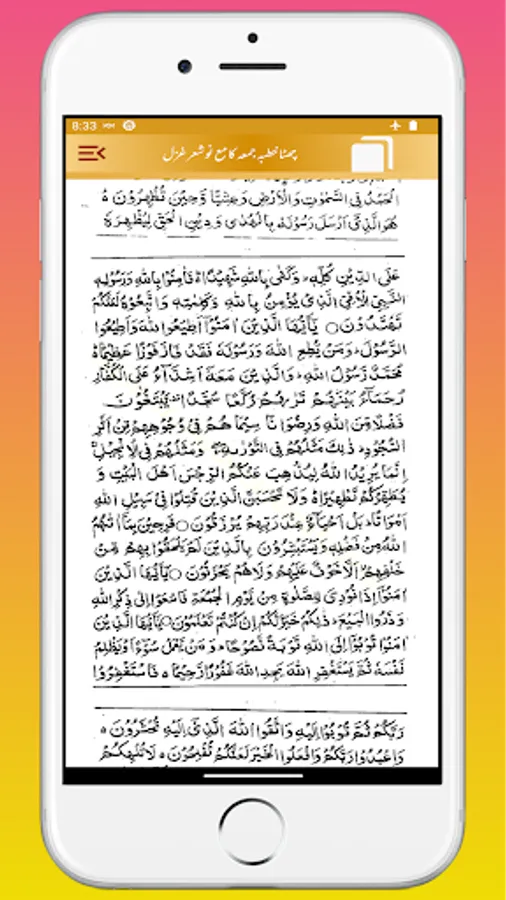 8:33
چھٹا خطبہ جمعہ کا مع نو شعر غزل
الْحَمْدُ فِي السَّمٰوٰتِ وَالْاَرْضِ وَعَشِيًّا وَّحِيْنَ تُظْهِرُوْنَ ه
هُوَ الَّذِيْٓ اَرْسَلَ رَسُوْلَهٗ بِالْهُدٰى وَدِيْنِ الْحَقِّ لِيُظْهِرَهٗ
عَلَى الدِّيْنِ كُلِّهٖ وَكَفٰى بِاللّٰهِ شَهِيْدًا ه فَاٰمِنُوْا بِاللّٰهِ وَرَسُوْلِهِ
النَّبِيِّ الْاُمِّيِّ الَّذِيْ يُؤْمِنُ بِاللّٰهِ وَكَلِمٰتِهٖ وَاتَّبِعُوْهُ لَعَلَّكُمْ
تَهْتَدُوْنَ ○ يٰٓاَيُّهَا الَّذِيْنَ اٰمَنُوْٓا اَطِيْعُوا اللّٰهَ وَاَطِيْعُوا
الرَّسُوْلَ وَمَنْ يُّطِعِ اللّٰهَ وَرَسُوْلَهٗ فَقَدْ فَازَ فَوْزًا عَظِيْمًا ه
مُحَمَّدٌ رَّسُوْلُ اللّٰهِ وَالَّذِيْنَ مَعَهٗٓ اَشِدَّآءُ عَلَى الْكُفَّارِ
رُحَمَآءُ بَيْنَهُمْ تَرٰىهُمْ رُكَّعًا سُجَّدًا يَّبْتَغُوْنَ
فَضْلًا مِّنَ اللّٰهِ وَرِضْوَانًا سِيْمَاهُمْ فِيْ وُجُوْهِهِمْ مِّنْ اَثَرِ
السُّجُوْدِ ذٰلِكَ مَثَلُهُمْ فِي التَّوْرٰىةِ وَمَثَلُهُمْ فِي الْاِنْجِيْلِ
اِنَّمَا يُرِيْدُ اللّٰهُ لِيُذْهِبَ عَنْكُمُ الرِّجْسَ اَهْلَ الْبَيْتِ وَ
يُطَهِّرَكُمْ تَطْهِيْرًا ه وَلَا تَحْسَبَنَّ الَّذِيْنَ قُتِلُوْا فِيْ سَبِيْلِ اللّٰهِ
اَمْوَاتًا بَلْ اَحْيَآءٌ عِنْدَ رَبِّهِمْ يُرْزَقُوْنَ ○ فَرِحِيْنَ بِمَآ اٰتٰهُمُ
اللّٰهُ مِنْ فَضْلِهٖ وَيَسْتَبْشِرُوْنَ بِالَّذِيْنَ لَمْ يَلْحَقُوْا بِهِمْ مِّنْ
خَلْفِهِمْ اَلَّا خَوْفٌ عَلَيْهِمْ وَلَا هُمْ يَحْزَنُوْنَ ○ يٰٓاَيُّهَا الَّذِيْنَ
اٰمَنُوْٓا اِذَا نُوْدِيَ لِلصَّلٰوةِ مِنْ يَّوْمِ الْجُمُعَةِ فَاسْعَوْا اِلٰى ذِكْرِ اللّٰهِ
وَذَرُوا الْبَيْعَ ذٰلِكُمْ خَيْرٌ لَّكُمْ اِنْ كُنْتُمْ تَعْلَمُوْنَ ○ يٰٓاَيُّهَا الَّذِيْنَ
اٰمَنُوْا تُوْبُوْٓا اِلَى اللّٰهِ تَوْبَةً نَّصُوْحًا وَمَنْ يَّعْمَلْ سُوْٓءًا اَوْ يَظْلِمْ
نَفْسَهٗ ثُمَّ يَسْتَغْفِرِ اللّٰهَ يَجِدِ اللّٰهَ غَفُوْرًا رَّحِيْمًا ه فَاسْتَغْفِرُوْا
رَبَّكُمْ ثُمَّ تُوْبُوْٓا اِلَيْهِ وَاتَّقُوا اللّٰهَ الَّذِيْٓ اِلَيْهِ تُحْشَرُوْنَ ه
وَاعْبُدُوْا رَبَّكُمْ وَافْعَلُوا الْخَيْرَ لَعَلَّكُمْ تُفْلِحُوْنَ ه لَا تُلْهِكُمْ